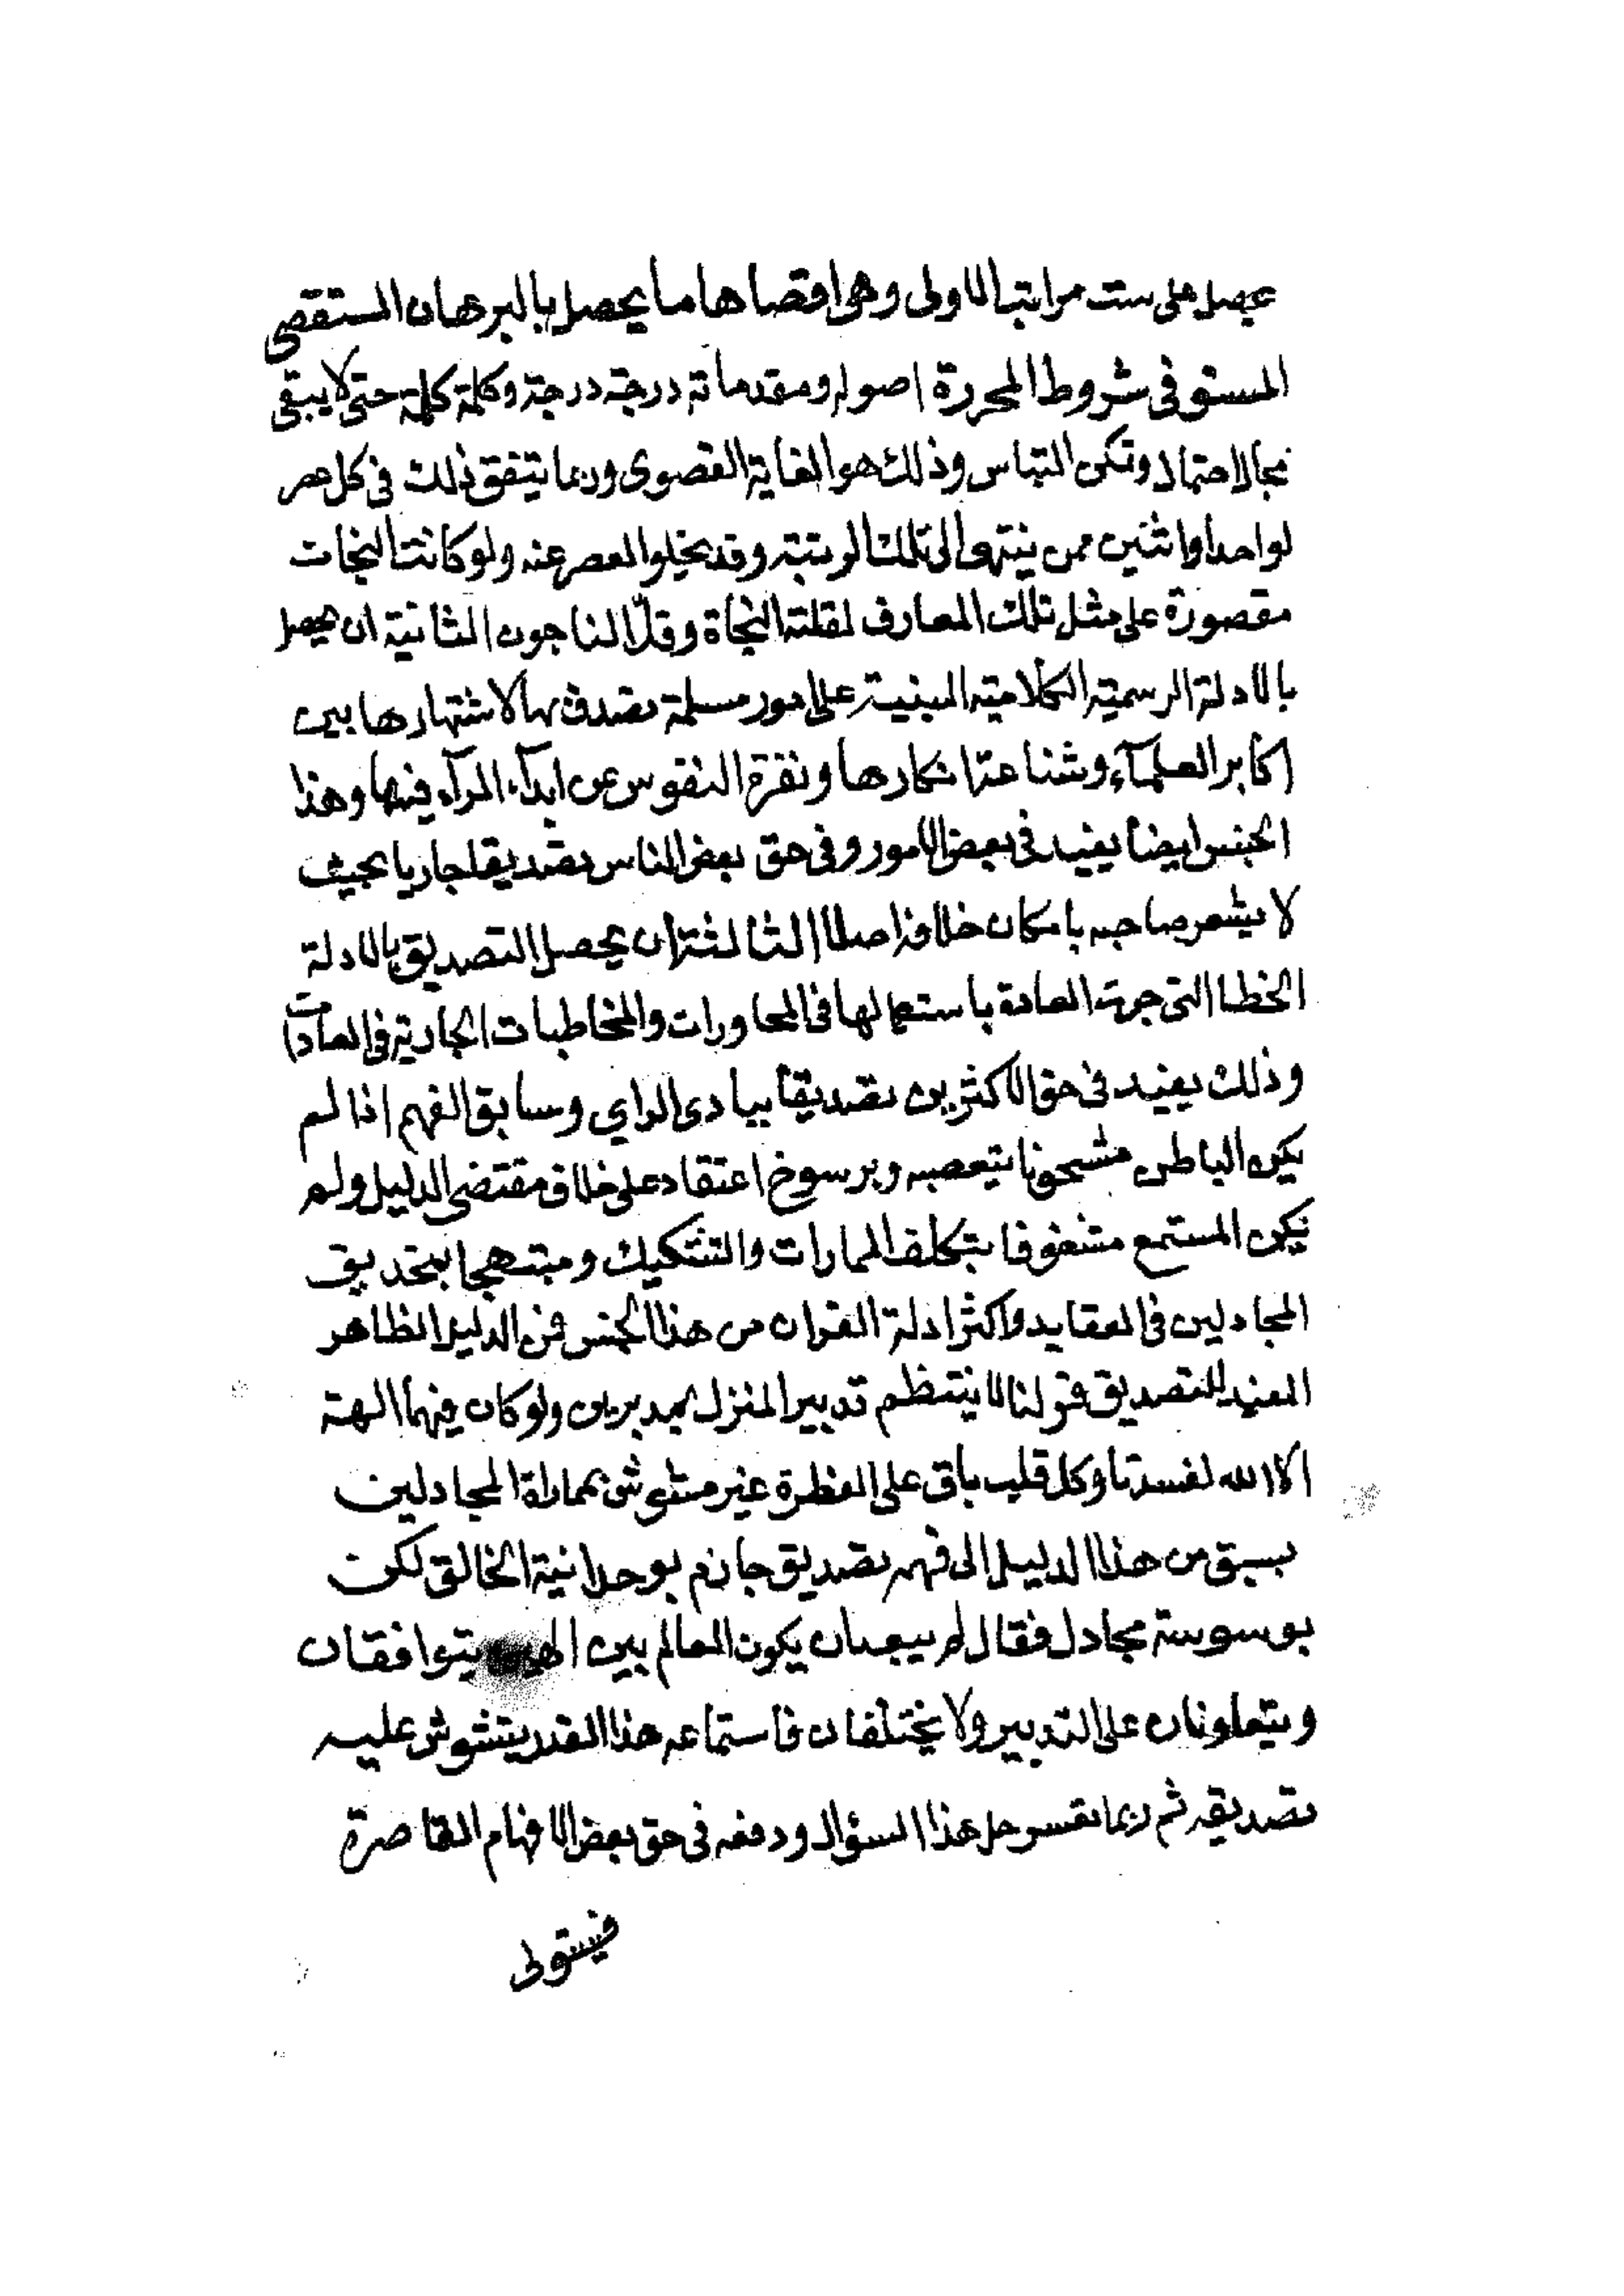 يحصل على ست مراتب الاولى وهو اقصاها ما يحصل بالبرهان المستقصى
المستوفى شروط المحررة اصوله ومقدماته درجة درجة وكلمة كلمة حتى لا يبقى
مجال احتمال وتمكن التباس وذلك هو الغاية القصوى وربما يتفق ذلك فى كل عصر
لواحد او اثنين ممن ينتهى الى تلك الرتبة وقد يخلوا العصر عنه ولو كانت النجات
مقصورة على مثل تلك المعارف لقلت النجاة وقلّ الناجون الثانية ان يحصل
بالادلة الرسمية الكلامية المبنية على امور مسلمة تصدق بها لاشتهارها بين
اكابر العلمآء وشناعة انكارها ونفرة النفوس عن ابدآء المرآء فيها وهذا
الجنس ايضا يفيد فى بعض الامور وفى حق بعض الناس تصديقا جازيا بحيث
لا يشعر صاحبه بامكان خلافه اصلا الثالثة ان يحصل التصديق بالادلة
الخطا التى جرت العادة باستعمالها فى المحاورات والمخاطبات الجارية فى العادات
وذلك يفيد فى حق الاكثرين تصديقا ببادى الراي وسابق الفهم اذا لم
يكن الباطن مشحونا بتعصبه وبرسوخ اعتقاد على خلاف مقتضى الدليل ولم
يكن المستمع مشغوفا بتكلف الممارات والتشكيك ومبتهجا بتحديق
المجادلين فى العقايد واكثر ادلة القران من هذا الجنس فمن الدليل الظاهر
المفيد للتصديق قولنا لا ينتظم تدبير المنزل بمدبرين ولو كان فيهما الهة
الا الله لفسدتا وكل قلب باق على الفطرة غير مشوش بمماراة المجادلين
يسبق من هذا الدليل الى فهمه تصديق جازم بوحدانية الخالق لكن
بوسوسة مجادل فقال لم يبعد ان يكون العالم بين يتوافقان
ويتعاونان على التدبير ولا يختلفان فاستماعه هذا القدر يتشوش عليه
تصديقه ثم ربما تعسر حل هذا السؤال ودفعه فى حق بعض الافهام القاصرة
فيستولى